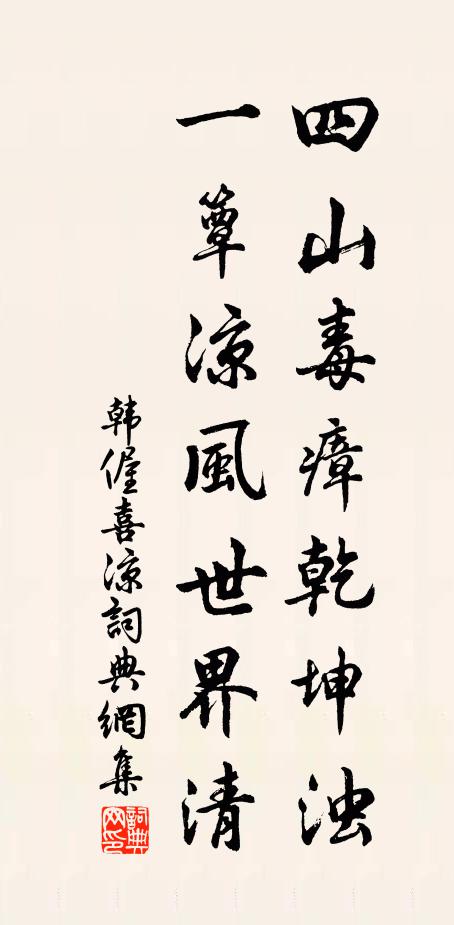 四山毒瘴乾坤浊
一簟凉風世界清
韩偓喜凉詞典網集
詞典網印